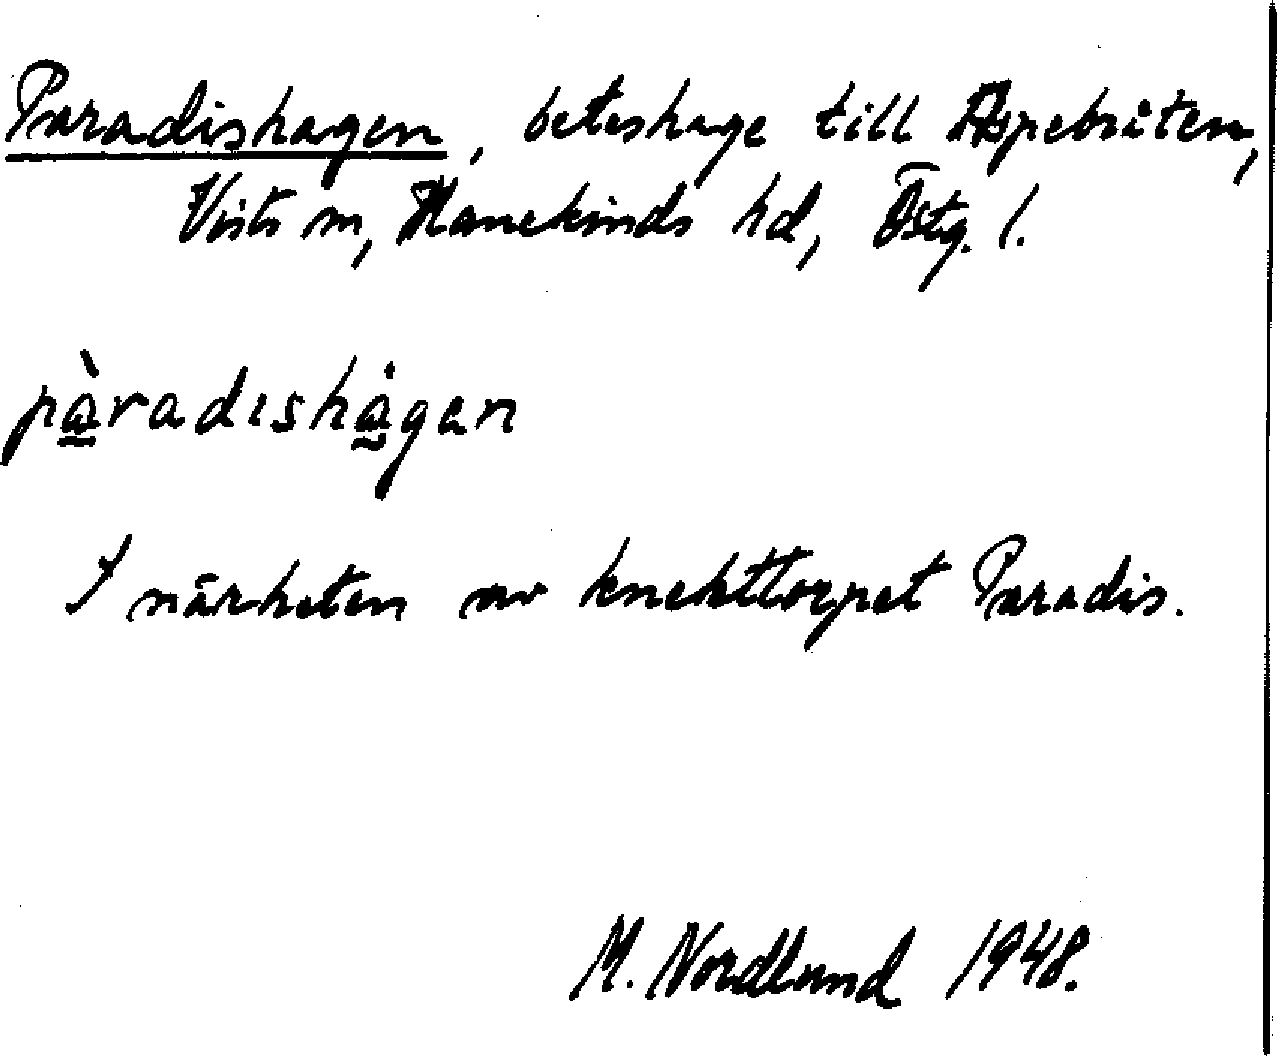 Paradishagen, beteshage till Aspebråten,
Vists sn, Hanekinds hd, Östg. l.
pàradıshȧgen
I närheten av knekttorpet Paradis.
M. Nordlund 1948.